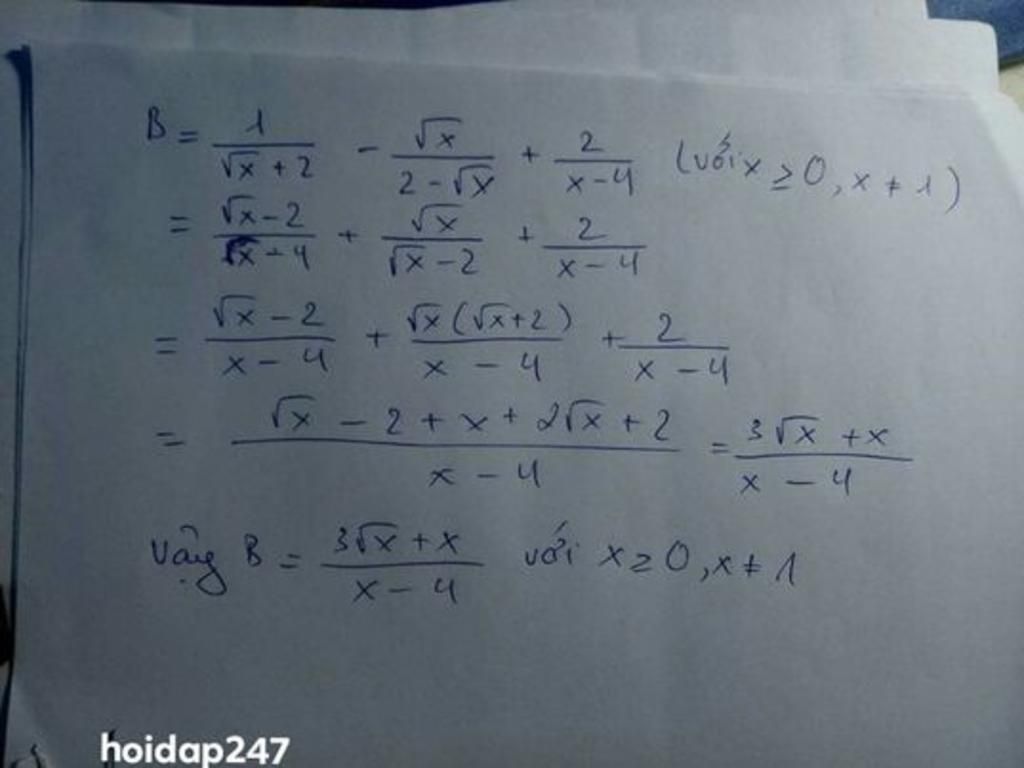 B = 1/(√x + 2) - √x/(2 - √x) + 2/(x - 4) (với x ≥ 0, x ≠ 1)
= (√x - 2)/(x - 4) + √x/(√x - 2) + 2/(x - 4)
= (√x - 2)/(x - 4) + √x(√x + 2)/(x - 4) + 2/(x - 4)
= (√x - 2 + x + 2√x + 2)/(x - 4) = (3√x + x)/(x - 4)
Vậy B = (3√x + x)/(x - 4) với x ≥ 0, x ≠ 1
hoidap247